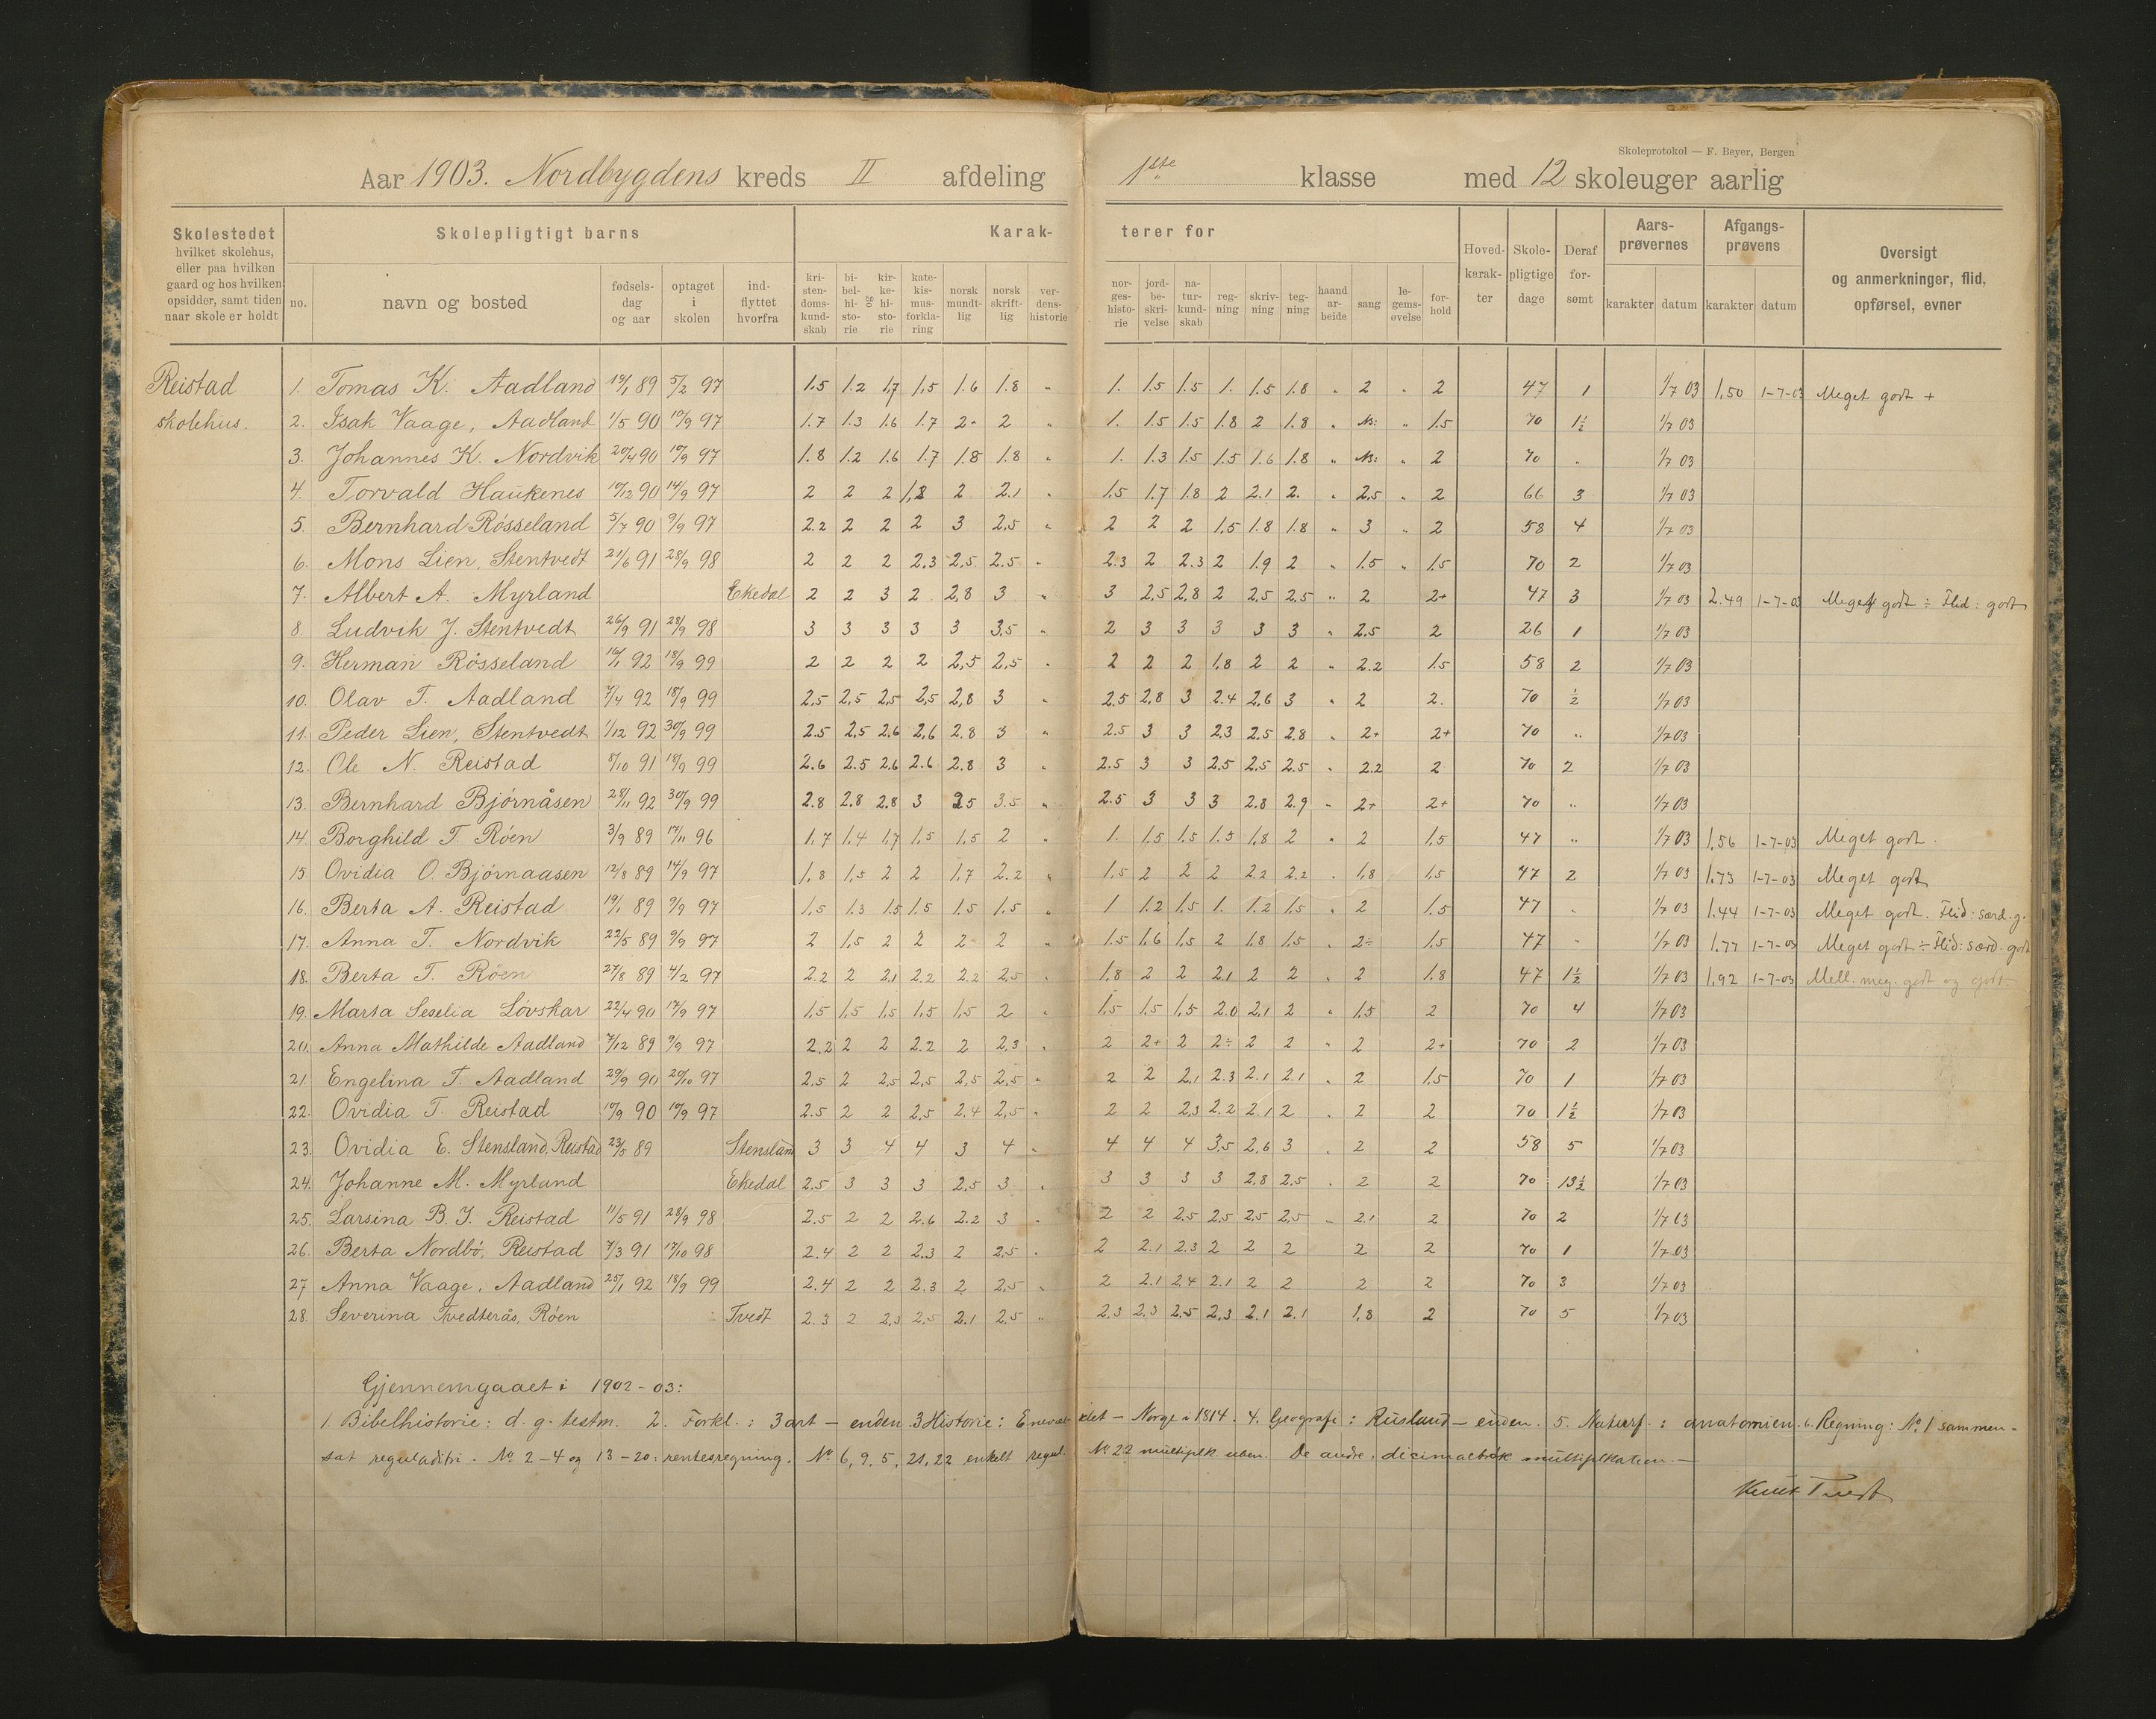 Skoleprotokol — F. Beyer, Bergen
Aar 1903. Nordbygdens kreds II afdeling 1ste klasse med 12 skoleuger aarlig
Skolestedet hvilket skolehus, eller paa hvilken gaard og hos hvilken opsidder, samt tiden naar skole er holdt
Skolepligtigt barns
no. navn og bosted fødsels-dag og aar optaget i skolen ind-flyttet hvorfra
Karak-terer for
kri-sten-doms-kund-skab bi-bel-hi-sto-rie og kir-ke-hi-sto-rie kate-kis-mus-forkla-ring norsk mundt-lig norsk skrift-lig ver-dens-historie nor-ges-histo-rie jord-be-skri-velse na-tur-kund-skab reg-ning skriv-ning teg-ning haand ar-beide sang le-gems-øvelse for-hold
Hoved-karak-ter Skole-pligtige dage Deraf for-sømt
Aars-prøvernes karakter datum
Afgangs-prøvens karakter datum
Oversigt og anmerkninger, flid, opførsel, evner
Reistad skolehus.
1. Tomas K. Aadland 19/1 89 5/2 97 1.5 1.2 1.7 1.5 1.6 1.8 " 1. 1.5 1.5 1. 1.5 1.8 " 2 " 2 47 1 1/7 03 1.50 1-7-03 Meget godt +
2. Isak Vaage, Aadland 1/5 90 10/9 97 1.7 1.3 1.6 1.7 2- 2 " 1. 1.5 1.5 1.8 2 1.8 " " 1.5 70 1½ 1/7 03
3. Johannes K. Nordvik 20/4 90 10/9 97 1.8 1.2 1.6 1.7 1.8 1.8 " 1. 1.3 1.5 1.5 1.6 1.8 " " 2 70 " 1/7 03
4. Torvald Haukenes 10/12 90 14/9 97 2 2 2 1,8 2 2.1 " 1.5 1.7 1.8 2 2.1 2. " 2,5 " 2 66 3 1/7 03
5. Bernhard Rösseland 5/7 90 9/9 97 2.2 2 2 2 3 2.5 " 2 2 2 1,5 1.8 1.8 " 3 " 2 58 4 1/7 03
6. Mons Lien, Stentvedt 21/6 91 28/9 98 2 2 2 2.3 2,5 2.5 " 2.3 2 2.3 2 1.9 2 " 1.5 " 1.5 70 2 1/7 03
7. Albert A. Myrland Ekedal 2 2 3 2 2,8 3 " 3 2,5 2,8 2 2,5 2,5 " 2 2+ 47 3 1/7 03 2.49 1-7-03 Meget godt ÷ Flid: godt
8 Ludvik J. Stentvedt 26/9 91 28/9 98 3 3 3 3 3 3,5 " 2 3 3 3 3 3 " 2.5 2 26 1 1/7 03
9. Herman Rösseland 16/1 92 18/9 99 2 2 2 2 2,5 2,5 " 2 2 2 1,8 2 2 " 2.2 1.5 58 2 1/7 03
10. Olav T. Aadland 7/4 92 18/9 99 2.5 2,5 2,5 2,5 2,8 3 " 2.5 2,8 3 2.4 2.6 3 " 2 2. 70 ½ 1/7 03
11. Peder Lien, Stentvedt 1/12 92 30/9 99 2.5 2,5 2.6 2,6 2.8 3 " 2.5 3 3 2.3 2.5 2.8 " 2+ 2+ 70 " 1/7 03
12. Ole N. Reistad 8/10 91 18/9 99 2.6 2.5 2.6 2.6 2.8 3 " 2.5 3 3 2.5 2.5 2.5 " 2.2 2 70 2 1/7 03
13. Bernhard Bjørnåsen 28/11 92 30/9 99 2.8 2.8 2.8 3 3.5 " 2.5 3 3 3 2.8 2.9 " 2+ 2+ 70 " 1/7 03
14. Borghild T. Röen 3/9 89 17/11 96 1.7 1.4 1,7 1,5 1,5 2 " 1. 1,5 1.5 1.5 1,8 2 " 2 1,5 47 " 1/7 03 1,56 1-7-03 Meget godt.
15. Ovidia O. Bjørnaasen 12/8 89 14/9 97 1,8 1,5 2 2 1,7 2.2 " 1,5 2 2 2 2.2 2.2 . 1,8 1,5 47 2 1/7 03 1.73 1-7-03 Meget godt
16. Berta A. Reistad 19/1 89 9/9 97 1,5 1.3 1.5 1.5 1.5 1,5 " 1 1.2 1,5 1. 1.2 1,5 " 2 1.5 47 . 1/7 03 1.44 1-7-03 Meget godt. Flid: særd. g.
17. Anna T. Nordvik 22/5 89 9/9 97 2 1,5 2 2 2 2 " 1.5 1,6 1,5 2 1,8 1,5 . 2÷ 1,5 47 - 1/7 03 1.77 1-7-03 Meget godt ÷ Flid: særd. godt
18. Berta T. Röen 27/8 89 4/2 97 2.2 2 2.1 2.2 2.2 2,5 . 1,8 2 2 2.1 2 2 " 2 1.8 47 1½ 1/7 03 1,92 1-7-03 Mell. meg. godt og godt
19. Marta Seselia Lövskar 22/4 90 17/9 97 1,5 1,5 1,5 1,5 1,5 2 " 1,5 1,5 1,5 2.0 2,1 2 " 1,5 2 70 4 1/7 03
20. Anna Mathilde Aadland 7/12 89 9/9 97 2,2 2 2 2.2 2 2,3 . 2 2+ 2 2÷ 2 2 " 2 2+ 70 2 1/7 03
21. Engelina T. Aadland 29/9 90 20/10 97 2,5 2 2,5 2,5 2,5 2,5 " 2 2 2,1 2.3 2.1 2.1 . 2 1,5 70 1 1/7 03
22. Ovidia T. Reistad 10/9 90 10/9 97 2.5 2 2 2,5 2,4 2,5 " 2 2 2,3 2.2 2.1 2 . 2 2 70 1½ 1/7 03
23. Ovidia E. Stensland, Reistad 23/5 89 Stensland 3 3 4 4 3 4 . 4 4 4 3,5 2,6 3 . 2 2 58 5 1/7 03
24. Johanne M. Myrland Ekedal 2.5 3 3 3 2.5 3 . 3 3 3 3 2.8 2.5 . 2 2 70 13½ 1/7 03
25. Larsina B. J. Reistad 11/5 91 28/9 98 2.5 2 2 2.6 2.2 3 . 2 2 2,5 2,5 2,5 2,5 . 2.1 2 70 2 1/7 03
26. Berta Nordbö, Reistad 7/3 91 17/10 98 2.4 2 2 2.3 2 2,5 . 2 2.1 2.3 2 2 2 2 2 70 1 1/7 03
27 Anna Vaage, Aadland 25/1 92 18/9 99 2.4 2 2 2.3 2 2,5 " 2 2.1 2.4 2.1 2 2 2 2 70 3 1/7 03
28. Severina Tvedterås, Röen Tvedt 2.3 2 2,3 2,5 2.1 2,5 " 2,3 2,3 2,5 2,3 2.1 2.1 1,8 2 70 5 1/7 03
Gjennemgaaet i 1902-03:
1. Bibelhistorie: d. g. testm. 2. Forkl.: 3 art — enden. 3 Historie: Enevældet — Norge i 1814. 4. Geografi: Rusland — enden. 5. Naturf.: anatomien. 6. Regning: No 1 sammen-
sat reguladitri. No 2-4 og 13-20: rentesregning. No 6, 9, 5, 21, 22 enkelt regul. No 22 multiplk uben. De andre, multiplkation. —
Knut Tvedt